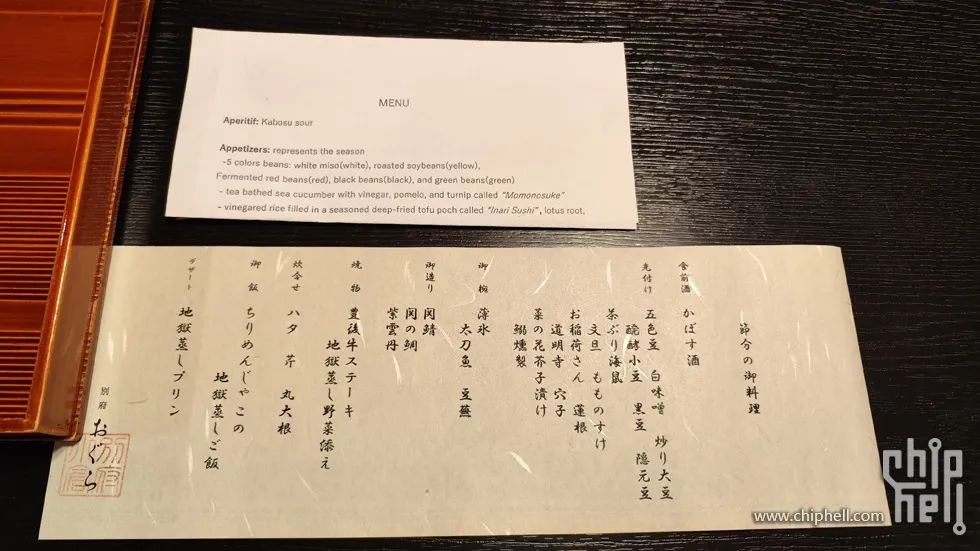 MENU
Aperitif: Kabosu sour
Appetizers: represents the season
-5 colors beans: white miso(white), roasted soybeans(yellow),
Fermented red beans(red), black beans(black), and green beans(green)
- tea bathed sea cucumber with vinegar, pomelo, and turnip called "Momonosuke"
- vinegared rice filled in a seasoned deep-fried tofu poch called "Inari Sushi", lotus root,
節分の御料理
食前酒 かぼす酒
先付け 五色豆 白味噌 炒り大豆
醗酵小豆 黒豆 隠元豆
茶ぶり海鼠
文旦 もものすけ
お稲荷さん 蓮根
道明寺 穴子
菜の花芥子漬け
鰯燻製
御椀 薄氷
太刀魚 豆蕪
御造り 関鯖
関の鯛
紫雲丹
焼物 豊後牛ステーキ
地獄蒸し野菜添え
炊合せ ハタ 芹 丸大根
御飯 ちりめんじゃこの
地獄蒸しご飯
デザート 地獄蒸しプリン
別府 おぐら
chip
hell
www.chiphell.com